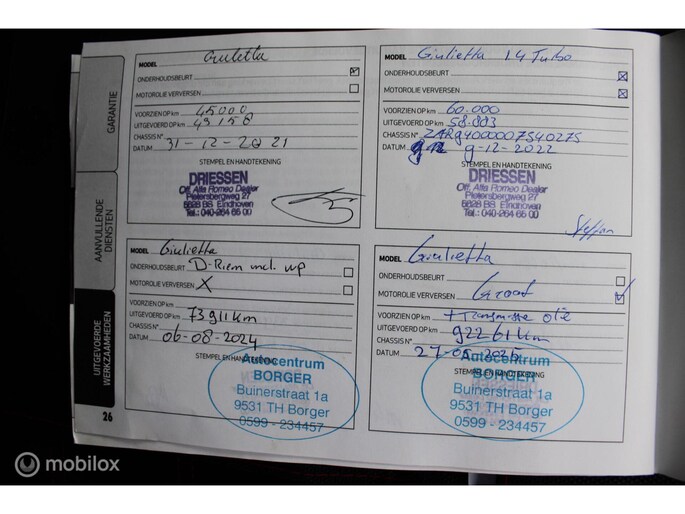 GARANTIE
AANVULLENDE
DIENSTEN
UITGEVOERDE
WERKZAAMHEDEN
26
MODEL Giulietta
ONDERHOUDSBEURT
MOTOROLIE VERVERSEN
VOORZIEN OP km 45000
UITGEVOERD OP km 49158
CHASSIS N°
DATUM 31-12-2021
STEMPEL EN HANDTEKENING
DRIESSEN
Off. Alfa Romeo Dealer
Pietersbergweg 27
5628 BS Eindhoven
Tel.: 040-264 65 00
MODEL Giulietta 1.4 Turbo
ONDERHOUDSBEURT
MOTOROLIE VERVERSEN
VOORZIEN OP km 60.000
UITGEVOERD OP km 58.883
CHASSIS N° ZAR94000007540275
DATUM 9-12-2022
STEMPEL EN HANDTEKENING
DRIESSEN
Off. Alfa Romeo Dealer
Pietersbergweg 27
5628 BS Eindhoven
Tel.: 040-264 65 00
Steffan
MODEL Giulietta
ONDERHOUDSBEURT D-Riem incl. wp
MOTOROLIE VERVERSEN X
VOORZIEN OP km
UITGEVOERD OP km 73911km
CHASSIS N°
DATUM 06-08-2024
STEMPEL EN HANDTEKENING
Autocentrum
BORGER
Buinerstraat 1a
9531 TH Borger
0599 - 234457
MODEL Giulietta
ONDERHOUDSBEURT
MOTOROLIE VERVERSEN Groot
VOORZIEN OP km + Transmissie olie
UITGEVOERD OP km 92261km
CHASSIS N°
DATUM
STEMPEL EN HANDTEKENING
Autocentrum
BORGER
Buinerstraat 1a
9531 TH Borger
0599 - 234457
mobilox